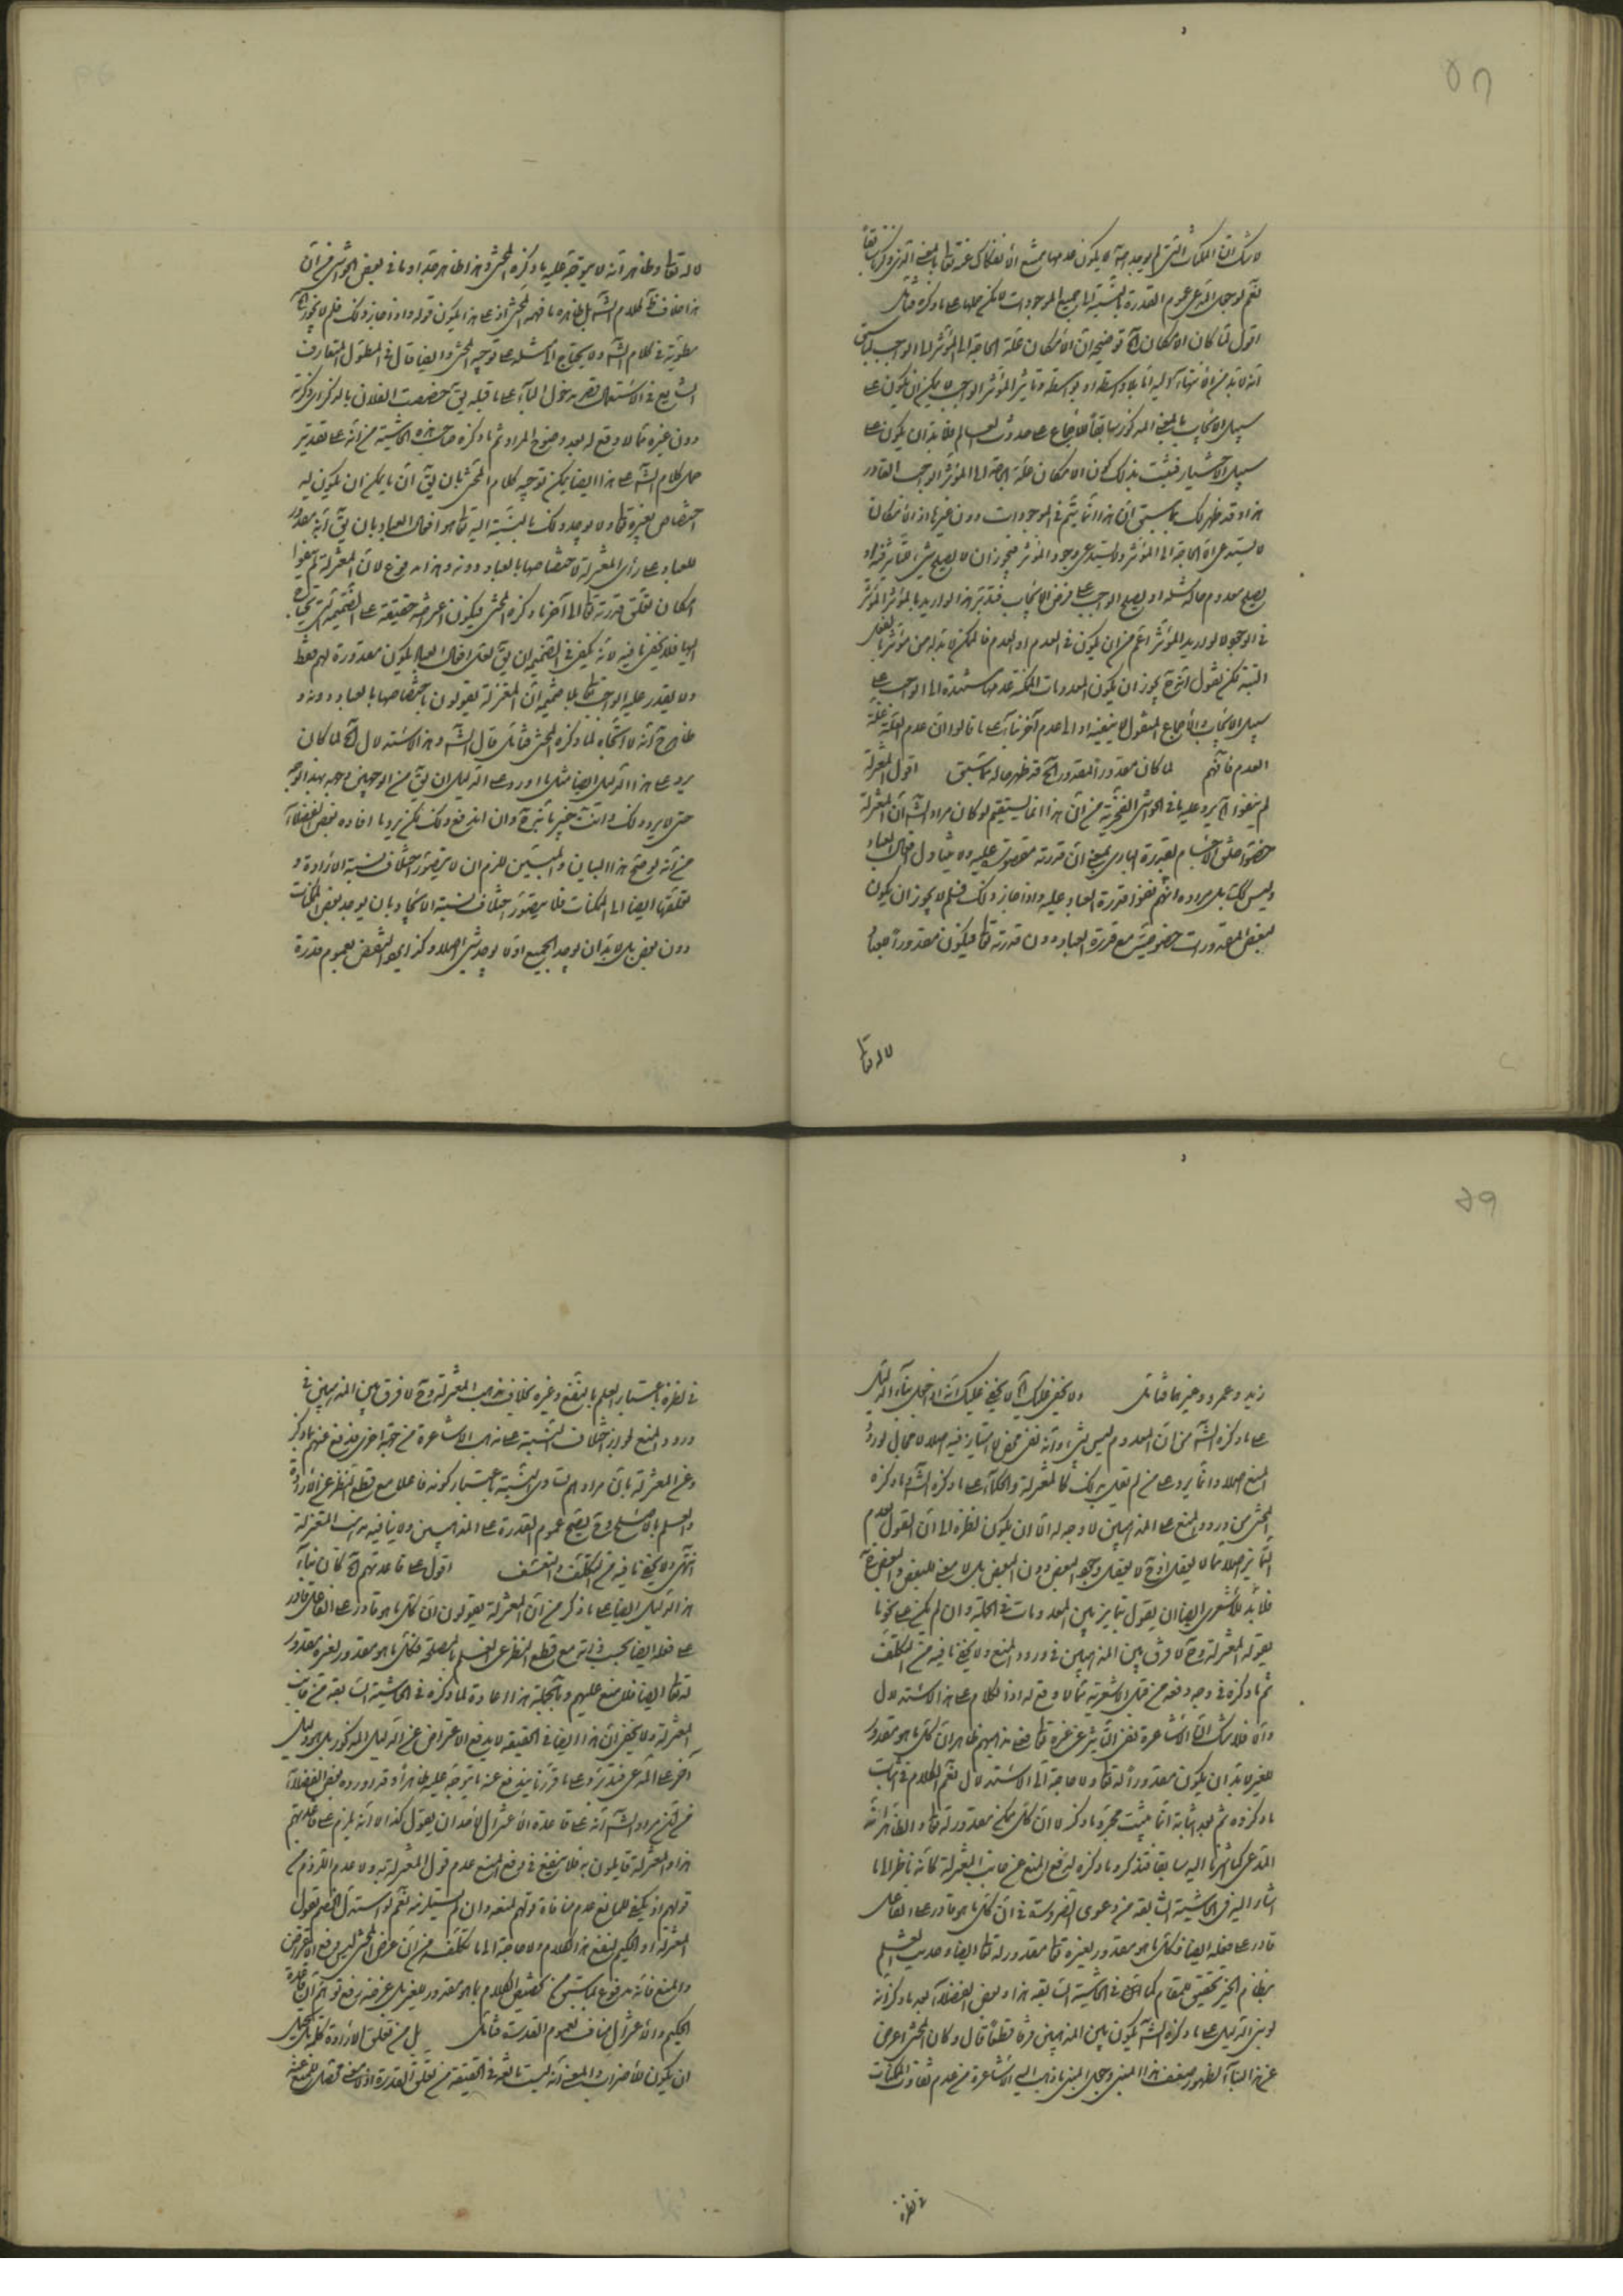 لا شك ان الممكنات التي لم يوجد اصلا لا يكون عدمها ممتنع الانفكاك عنه تعالى بالمعنى الذي ذكر سابقا
نعم لو جعل المدعى عموم القدرة بالنسبة الى جميع الموجودات لا يمكن حملها على ما ذكره فتأمل
اقول لما كان الامكان آه توضيحه ان الامكان علة الحاجة الى المؤثر اما الواجب لما سبق
انه لا بد من الانتهاء اليه اما بلا واسطة او بواسطة وتاثير المؤثر الواجب لا يمكن ان يكون على
سبيل الايجاب بالمعنى المذكور سابقا للاجماع على حدوث العالم فلا بد ان يكون على
سبيل الاختيار فيثبت بذلك كون الامكان علة الحاجة الى المؤثر الواجب القادر
هذا وقد ظهر لك مما سبق ان هذا انما يتم في الموجودات دون غيرها اذ الامكان
لا يستدعي الا الحاجة الى المؤثر ولا يستدعي وجود المؤثر فيجوز ان لا يصلح شيء لتأثير فيه او
يصلح معدوم ما كمثله او يصلح الواجب على فرض الايجاب فتدبر هذا لو اريد بالمؤثر المؤثر
في الوجود ولو اريد المؤثر اعم من ان يكون في العدم او العدم فالممكن لا بد له من مؤثر بالفعل
البتة لكن نقول يجوز ان يكون المعدومات الممكنة عدمها مستندة الى الواجب على
سبيل الايجاب والاجماع المنقول لا ينفيه او الى عدم آخر بناء على ما قالوا ان عدم العلة علة
العدم فافهم لما كان مقدور المقدور آه قد ظهر حاله مما سبق اقول المعتزلة
لم ينفوا آه يرد عليه ما في الحواشي الفخرية من ان هذا انما يستقيم لو كان مراد الشه ان المعتزلة
خصوا خلق الاجسام بقدرة الباري بمعنى ان قدرته مقصورة عليه ولا يتناول افعال العباد
وليس كك بل مراده انهم نفوا قدرة العباد عليه واذا جاز ذلك فلم لا يجوز ان يكون
لبعض المقدورات خصوصية مع قدرة العباد دون قدرته تعالى فيكون مقدورا لعباد
لا له تعالى
لا له تعالى وظاهر انه لا يتوجه عليه ما ذكره المحشى وهذا ظاهر جدا وما في بعض الحواشي من ان
هذا خلاف ظاهر كلام الشه بل ظاهره ما فهمه المحشى اذ على هذا يكون قوله واذا جاز ذلك فلم لا يجوز آه
مطوية في كلام الشه ولا يحتاج الى مثله على توجيه المحشى وايضا قال في المطول المتعارف
الشايع في الاستعمال قصر مدخول الباء على ما قبله يق خصصت الفلان بالذكر اي ذكرته
دون غيره مما لا وقع له بعد وضوح المراد ثم ما ذكره صاحب هذه الحاشية من انه على تقدير
حمل كلام الشه على هذا ايضا يمكن توجيه كلام المحشى بان يق ان ما يمكن ان يكون له
اختصاص بغيره تعالى ولا يوجد ذلك بالنسبة اليه تعالى هو افعال العباد بان يق انه مقدور
للعباد على رأي المعتزلة لاختصاصها بالعباد دونه وهذا مدفوع لان المعتزلة لم ينفوا
امكان تعلق قدرته تعالى الى آخر ما ذكره المحشى فيكون اعتراضه حقيقة على الضميمة التي يحتاج
اليها فلا يخفى ما فيه لانه يكفي في الضميمة ان يق لعل افعال العباد يكون مقدورة لهم فقط
ولا يقدر عليه الواجب تعالى بلا ضميمة ان المعتزلة يقولون باختصاصها بالعباد دونه و
ظاهر ح انه لا اتجاه لما ذكره المحشى فتأمل قال الشه وهذا الاستدلال آه لما كان
يرد على هذا الدليل ايضا مثل ما اورد على الدليل ان يق من الوجهين وجه بهذا الوجه
حتى لا يرد ذلك وانت خبير بانه ح وان اندفع ذلك لكن يرد ما افاده بعض الفضلاء
من انه لو صح هذا البيان والتبيين للزم ان لا يتصور اختلاف نسبة الارادة و
تعلقها ايضا الى الممكنات فلا يتصور اختلاف نسبة الايجاد بان يوجد بعض الممكنات
دون بعض بل لا بد ان يوجد الجميع او لا يوجد شيء اصلا وكذا يجوز النقض بعموم قدرة
زيد وعمرو وغيرهما فتأمل ولا يخفى عليك آه لا يخفى عليك انه اذا جعل بناء الدليل
على ما ذكره الشه من ان المعدوم ليس بشيء وانه نفي محض لا امتياز فيه اصلا لا مجال لورود
المنع اصلا وانما يرد على من لم يقل بذلك كالمعتزلة والحكماء على ما ذكره الشه وما ذكره
المحشى من ورود المنع على المذهبين لا وجه له الا ان يكون نظره الى ان القول بعدم
التمايز اصلا مما لا يعقل اذ ح لا يعقل وجود البعض دون البعض بل لا معنى للبعض والبعض ح
فلا بد للاشعري ايضا ان يقول بتمايز بين المعدومات في الجملة وان لم يكن على نحو ما
يقوله المعتزلة وح لا فرق بين المذهبين في ورود المنع ولا يخفى ما فيه من التكلف
ثم ما ذكره في وجه دفعه من قبل الاشعرية مما لا وقع له اذ الكلام على هذا الاستدلال
والا فلا شك ان الاشاعرة نفى التأثير عن غيره تعالى فعلى مذهبهم ظاهر ان كل ما هو مقدور
للغير لا بد ان يكون مقدورا له تعالى ولا حاجة الى الاستدلال نعم الكلام في اثبات
ما ذكروه ثم بعد اثباته انما يثبت مجرد ما ذكر لا ان كل ممكن مقدور له تعالى والظاهر انه
المدعى كما اشرنا اليه سابقا فتذكر وما ذكره لدفع المنع عن جانب المعتزلة كانه ناظر الى ما
اشار اليه في الحاشية السابقة من دعوى الضرورة في ان كل ما هو قادر على الفاعل
قادر على فعله ايضا فكل ما هو مقدور لغيره تعالى مقدور له تعالى ايضا وحديث العلم
بنظام الخير تحقيق للمقام كما في الحاشية السابقة هذا وبعض الفضلاء بعد ما ذكر انه
لو بنى الدليل على ما ذكره الشه يكون بين المذهبين فرقا قطعا قال وكان المحشى اعرض
عن هذا البناء لظهور ضعف هذا المبنى وجعل المبنى ما ذهب اليه الاشاعرة من عدم تفاوت الممكنات
في نظره
في نظره باعتبار العلم بالنفع وغيره بخلاف مذهب المعتزلة وح لا فرق بين المذهبين في
ورود المنع لجواز اختلاف النسبة على مذهب الاشاعرة من جهة اخرى فدفع عنهم بما ذكر
وعن المعتزلة بان مرادهم تساوي النسبة باعتبار كونه فاعلا مع قطع النظر عن الارادة
والعلم بالاصلح وح يصح عموم القدرة على المذهبين ولا ينافيه مذهب المعتزلة
انتهى ولا يخفى ما فيه من التكلف والتعسف اقول على قاعدتهم آه كان بناء
هذا الدليل ايضا على ما ذكر من ان المعتزلة يقولون ان كل ما هو قادر على الفاعل قادر
على فعله ايضا بحسب ذاته مع قطع النظر عن العلم بالمصلحة فكل ما هو مقدور لغيره مقدور
له تعالى ايضا فلا منع عليهم وبالجملة هذا اعادة لما ذكره في الحاشية السابقة من جانب
المعتزلة ولا يخفى ان هذا ايضا في الحقيقة لا يدفع الاعتراض عن الدليل المذكور بل هو دليل
آخر على المدعى فتدبر وعلى ما قررنا يندفع عنه ما يتوجه عليه ظاهرا وقد اورده بعض الفضلاء
من ان مراد الشه انه على قاعدة الاعتزال لاحد ان يقول كذا لا انه يلزم على قاعدتهم
هذا والمعتزلة قايلون به فلا ينفع في دفع المنع عدم قول المعتزلة به ولا عدم اللزوم من
قولهم اذ يكفي للمانع عدم منافاة قولهم لمنعه وان لم يستلزمه نعم لو استدل الخصم بقول
المعتزلة او الحكيم لنفع هذا الكلام ولا حاجة الى ما تكلفه من ان غرض المحشى ليس دفع الاعتراض
والمنع فانه مدفوع بما سبق من تخصيص الكلام بما هو مقدور للغير بل غرضه دفع توهم ان قاعدة
الحكيم والاعتزال يناف لعموم القدرة فتأمل بل من تعلق الارادة كلها بل يحتمل
ان يكون للاضراب والمعنى انه ليست ناشئة في الحقيقة من تعلق القدرة اذ لا معنى محصل للمنع عنه